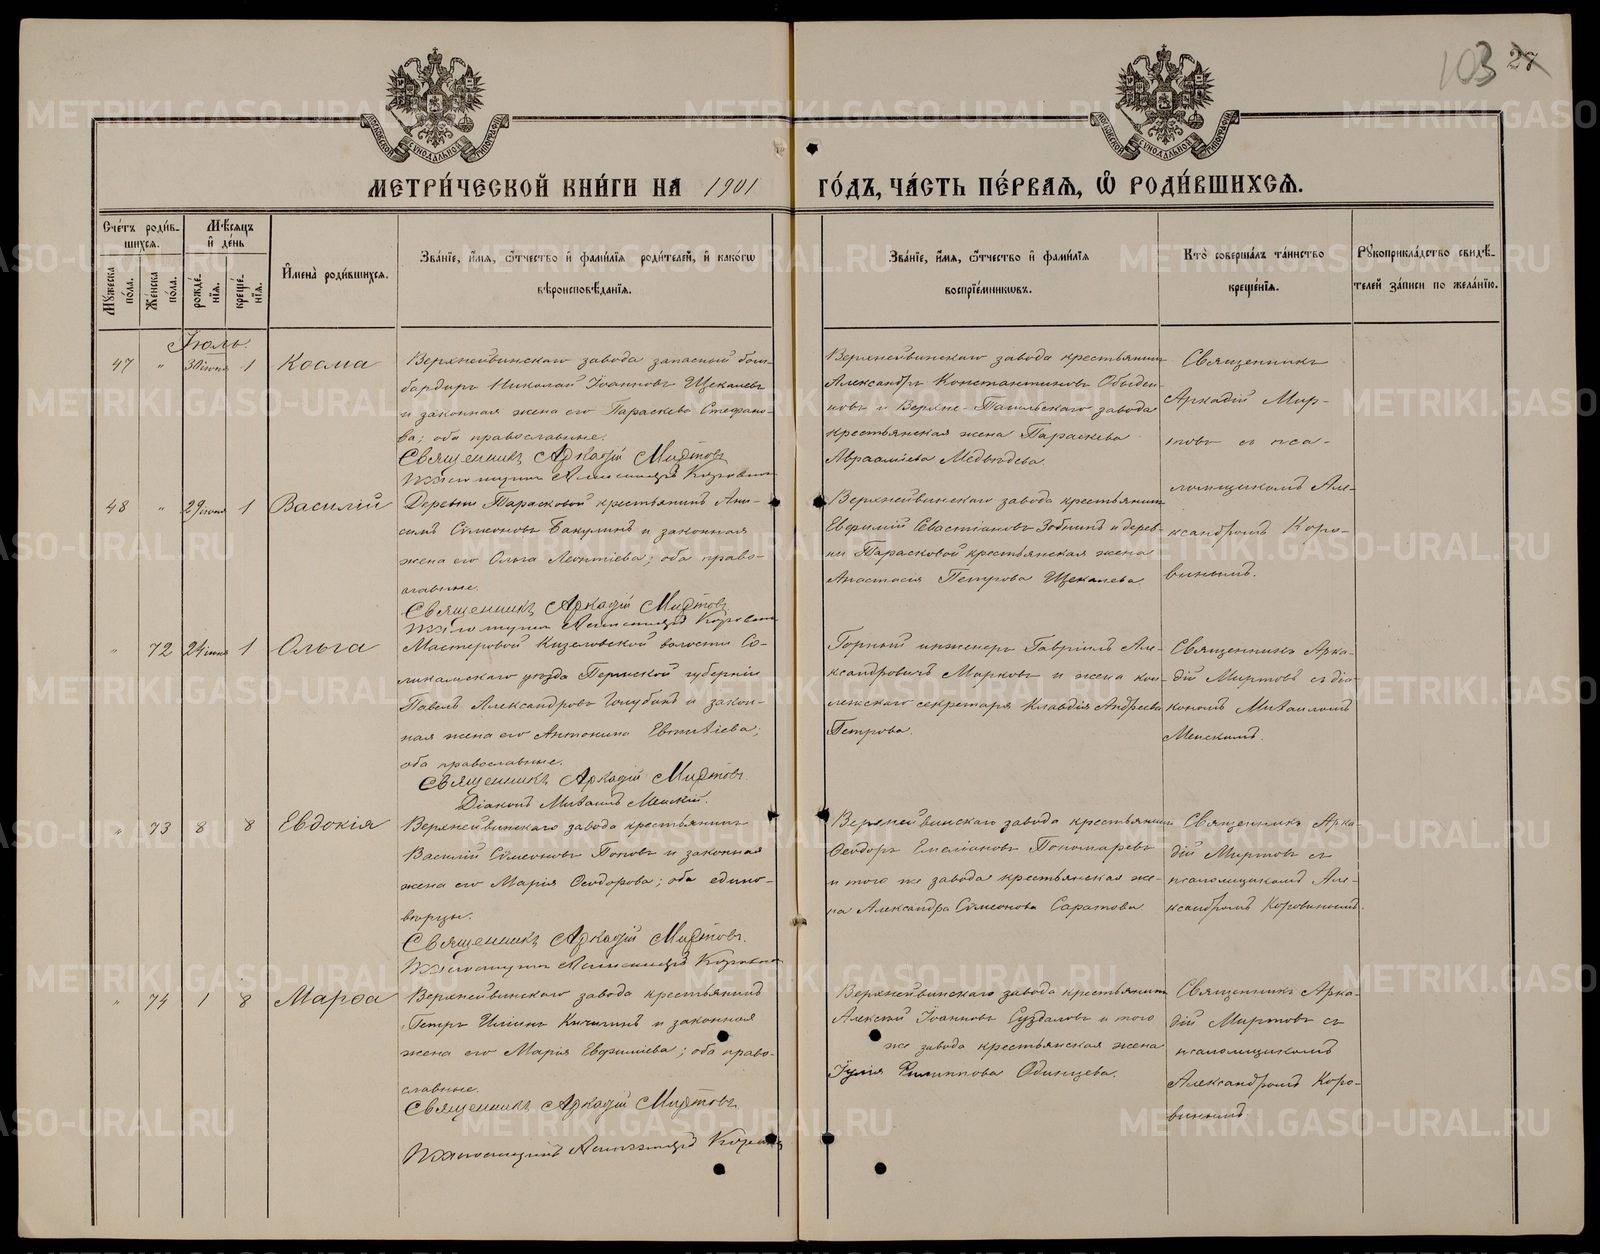 103 27
МЕТРИ́ЧЕСКОЙ КНИ́ГИ НА 1901 ГО́ДЪ, ЧА́СТЬ ПЕ́РВАѦ, Ѿ РОДИ́ВШИХСѦ.
Сче́тъ роди́в-
шихсѧ.
Мꙋ́жеска по́ла.
Же́нска по́ла.
Мѣ́сяцъ
и҆ де́нь
рожде́-
нїѧ.
креще́-
нїѧ.
И҆мена̀ роди́вшихсѧ.
Зва́нїе, и҆́мѧ, ѻ҆́тчество и҆ фамі́лїѧ роди́телей, и҆ како́гѡ
вѣроисповѣ́данїѧ.
Зва́нїе, и҆́мѧ, ѻ҆́тчество и҆ фамі́лїѧ
воспрїе́мникѡвъ.
Кто̀ соверша́лъ та́инство
креще́нїѧ.
Рꙋкоприкла́дство свидѣ́-
телей за́писи по жела́нїю.
Іюль.
47 " 30 июня 1 Косма
Верхнейвинскаго завода запасный бом-
бардиръ Николай Іоанновъ Щекалевъ
и законная жена его Параскева Стефано-
ва; оба православные.
Священникъ Аркадій Миртовъ
Псаломщикъ Александръ Коровинъ
Верхнейвинскаго завода крестьянинъ
Александръ Константиновъ Обыден-
новъ и Верхне-Тагильскаго завода
крестьянская жена Параскева
Авраамiева Медведева.
Священникъ
Аркадій Мир-
товъ съ пса-
ломщикомъ Але-
ксандромъ Коро-
винымъ.
48 " 29 июня 1 Василій
Деревни Тарасковой крестьянинъ Ани-
симъ Сѵмеоновъ Бакулинъ и законная
жена его Ольга Леонтіева; оба право-
славные.
Священникъ Аркадій Миртовъ.
Псаломщикъ Александръ Коровинъ
Верхнейвинскаго завода крестьянинъ
Евфимій Севастіановъ Зобнинъ и дерев-
ни Тарасковой крестьянская жена
Анастасія Петрова Щекалева
" 72 24 июня 1 Ольга
Мастеровой Кизеловской волости Со-
ликамскаго уезда Пермской губерніи
Павелъ Александровъ Голубинъ и закон-
ная жена его Антонина Евтихіева;
оба православные.
Священникъ Аркадій Миртовъ.
Діаконъ Михаилъ Менскій.
Горный инженеръ Гавріилъ Але-
ксандровичъ Марковъ и жена кол-
лежскаго секретаря Клавдія Андреева
Петрова.
Священникъ Арка-
дій Миртовъ съ діа-
кономъ Михаиломъ
Менскимъ.
" 73 8 8 Евдокія
Верхнейвинскаго завода крестьянинъ
Василій Сѵмеоновъ Поповъ и законная
жена его Марія Ѳеодорова; оба едино-
верцы.
Священникъ Аркадій Миртовъ.
Псаломщикъ Александръ Коровинъ
Верхнейвинскаго завода крестьянинъ
Ѳеодоръ Емеліановъ Пономаревъ
и того же завода крестьянская же-
на Александра Сѵмеонова Саратова
Священникъ Арка-
дій Миртовъ съ
псаломщикомъ Але-
ксандромъ Коровинымъ.
" 74 1 8 Марѳа
Верхнейвинскаго завода крестьянинъ
Петръ Иліинъ Кичигинъ и законная
жена его Марія Евфиміева; оба право-
славные.
Священникъ Аркадій Миртовъ
Псаломщикъ Александръ Коровинъ
Верхнейвинскаго завода крестьянинъ
Алексій Іоанновъ Суздаловъ и того
же завода крестьянская жена
Іулія Филиппова Одинцева.
Священникъ Арка-
дій Миртовъ съ
псаломщикомъ
Александромъ Коро-
винымъ.
METRIKI.GASO-URAL.RU